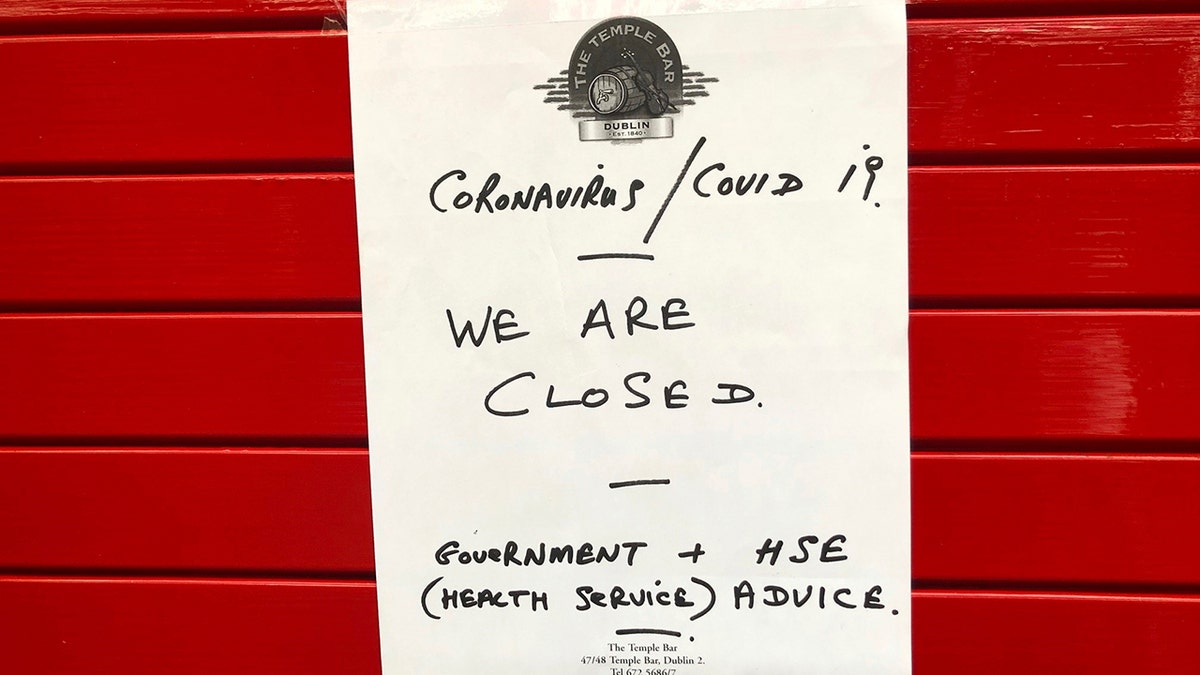 THE TEMPLE BAR
DUBLIN
• EST. 1840 •
CORONAVIRUS / COVID 19.
WE ARE
CLOSED.
GOVERNMENT + HSE
(HEALTH SERVICE) ADVICE.
The Temple Bar
47/48 Temple Bar, Dublin 2.
Tel 672 5686/7